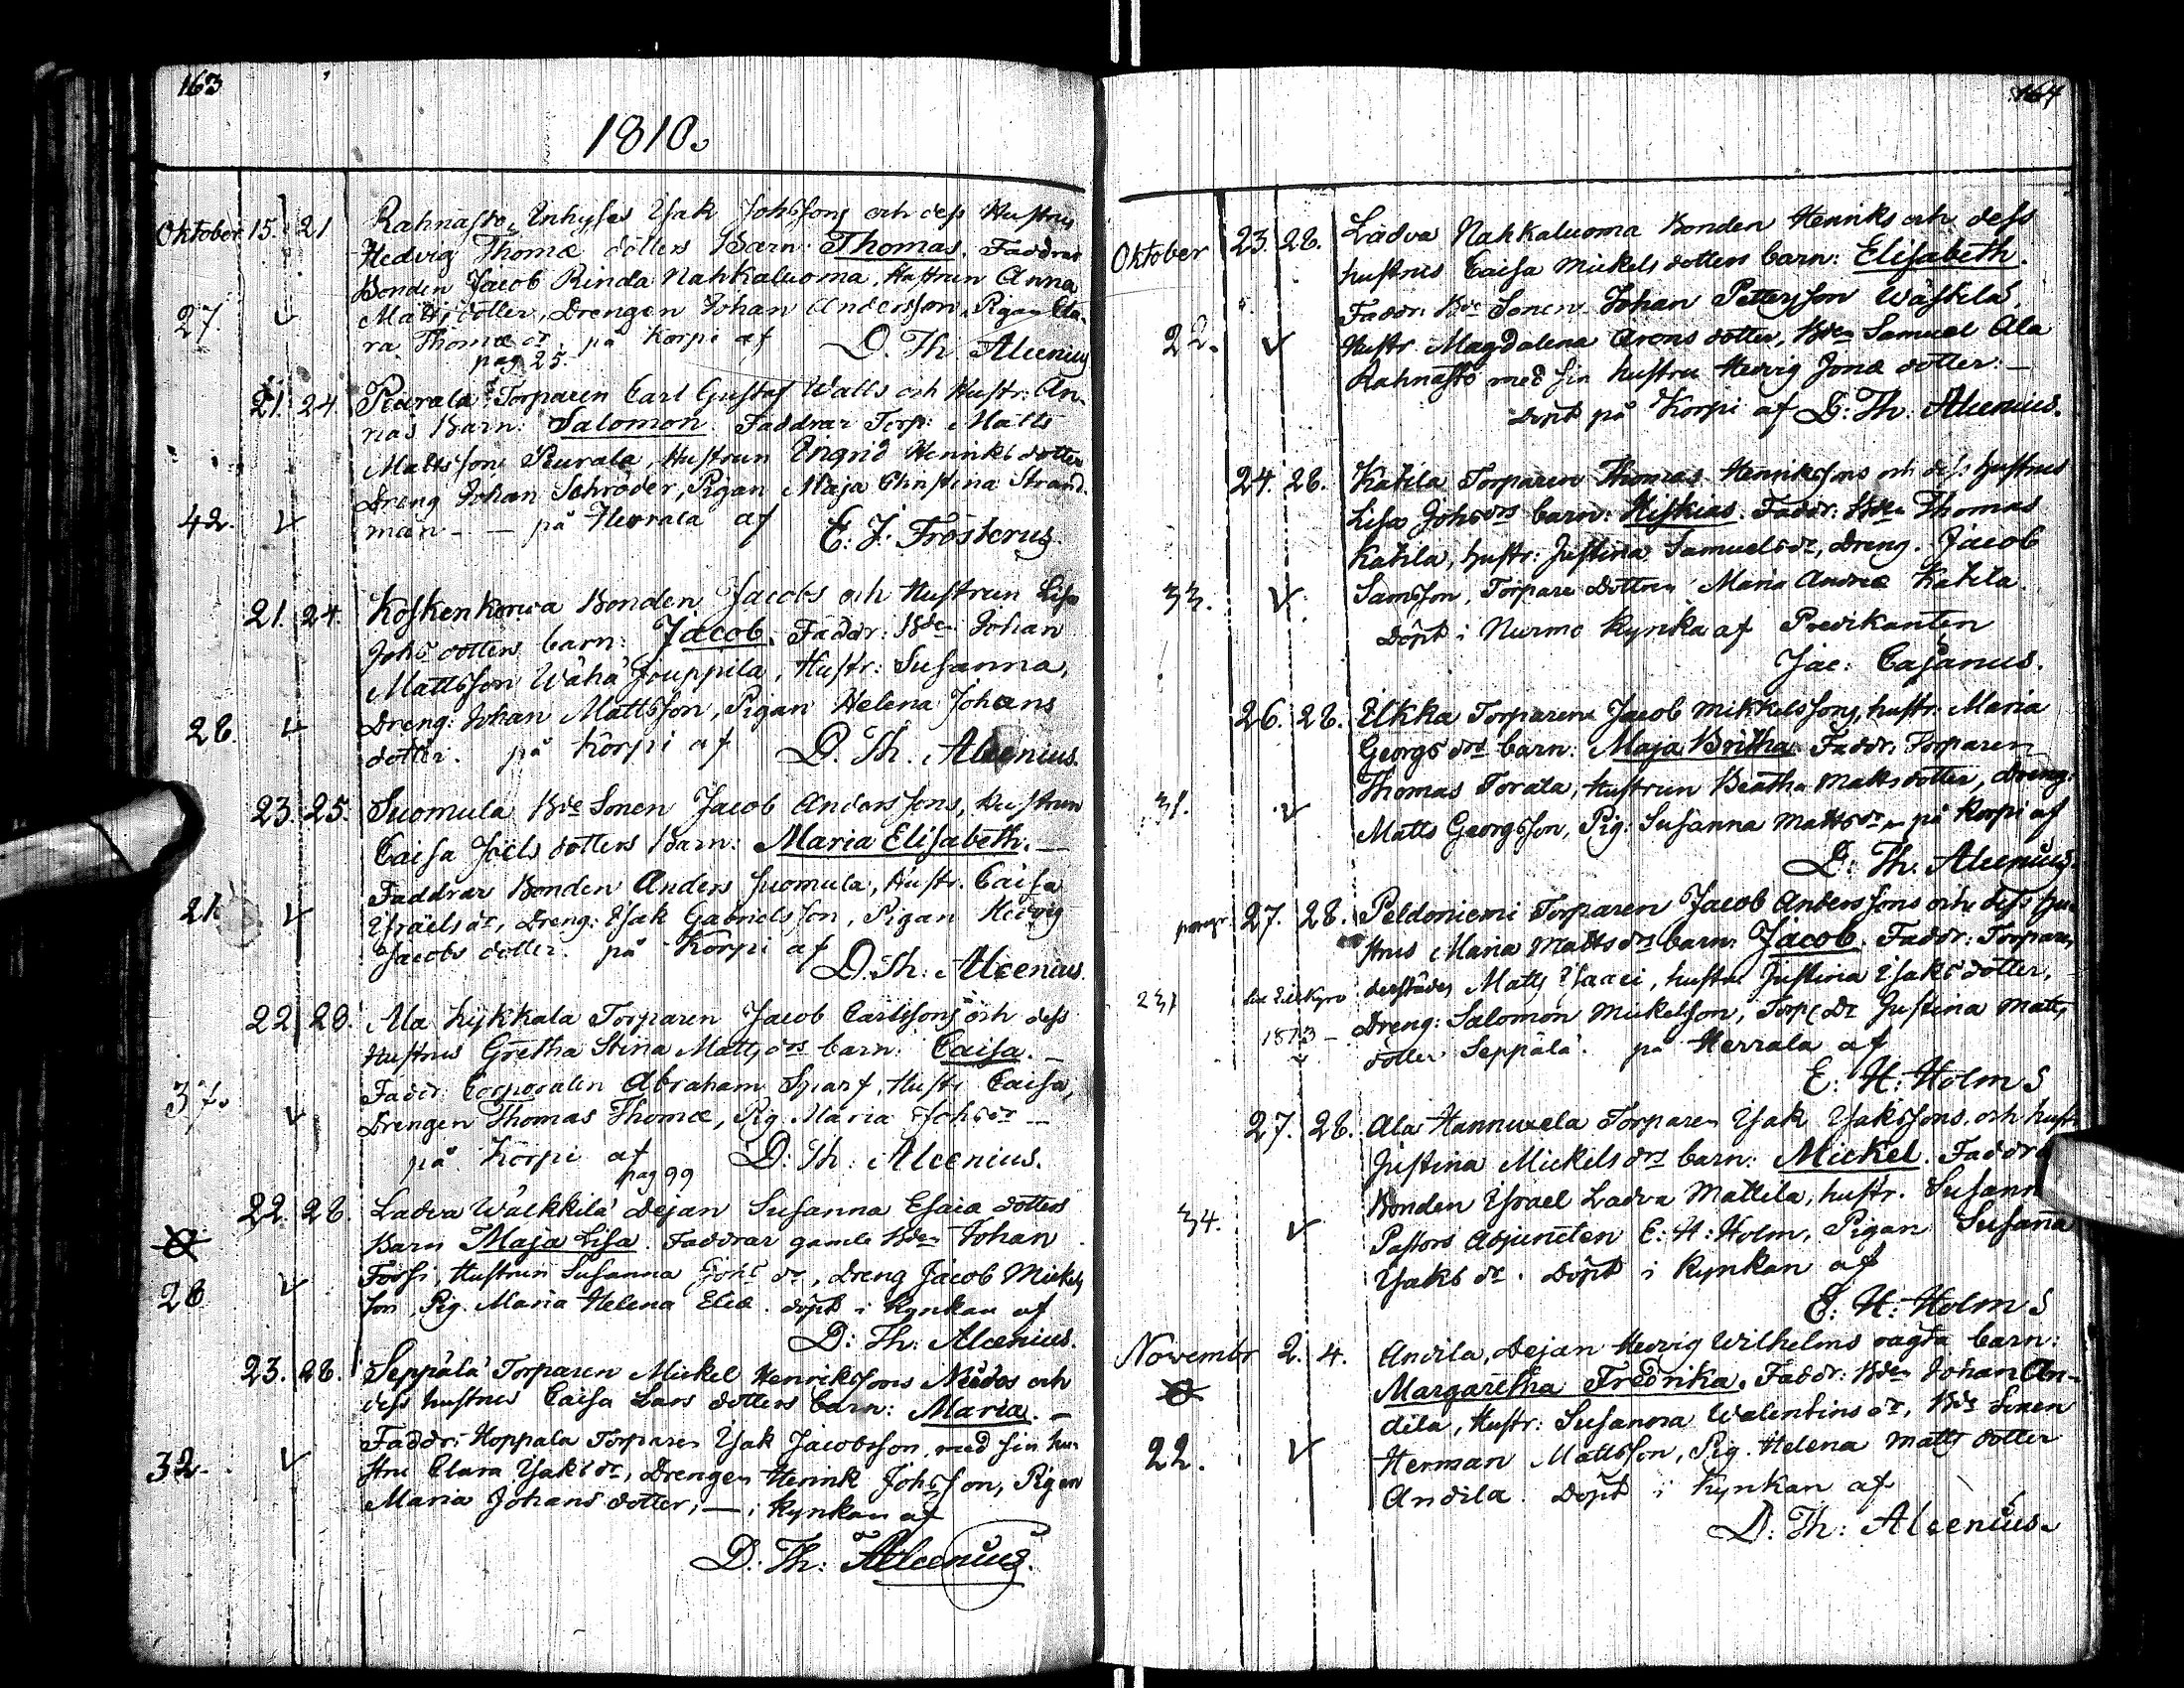 163
1810.
Oktober 15. 21 Rahnasto Inhyses Isak Johssons och dess Hustrus
Hedvig Thomæ dotters Barn: Thomas. Faddrar
Bonden Jacob Rinda Nahkaluoma, Hustrun Anna
27. Matts dotter, Drengen Johan Andersson, Pigan Cla-
ra Thomæ dr, på Korpi af D. Th. Alcenius
pag 25.
21. 24. Peurala Torparen Carl Gustaf Walls och Hustr: An-
nas Barn: Salomon. Faddrar Torp: Matts
Mattsson Peurala, Hustrun Ingrid Henriks dotter
Dreng Johan Schröder, Pigan Maja Christina Strand-
42. man - - på Herrala af E. J. Frosterus.
21. 24. Koskenkorwa Bonden Jacobs och Hustrun Lisa
Johs dotters barn: Jacob. Faddr: Bden Johan
Mattsson Wähä Jouppila, Hustr: Susanna,
28. Dreng: Johan Mattsson, Pigan Helena Johans
dotter. på Korpi af D. Th. Alcenius.
23. 25. Suomula Bde Sonen Jacob Anderssons, Hustrun
Caisa Joels dotters Barn: Maria Elisabeth. -
Faddrar Bonden Anders Suomula, Hustr. Caisa
21 Israels dr, Dreng: Isak Gabrielsson, Pigan Hedvig
Jacobs dotter. på Korpi af
D. Th: Alcenius.
22. 28. Ala hykkala Torparen Jacob Carlssons och dess
Hustrus Gretha Stina Matts drs barn: Caisa. -
Faddr: Corporalen Abraham Sparf, Hustr Caisa,
37. Drengen Thomas Thomæ, Pig. Maria Johs dr -
på Korpi af D: Th: Alcenius.
pag 99
22. 28. Ladva Wälkkilä Dejan Susanna Esaiæ dotters
Barn Maja Lisa. Faddrar gamle Bden Johan
Forsi, Hustrun Susanna Johs dr, Dreng Jacob Mickels
28 son, Pig. Maria Helena Eliæ. döpt i Kyrkan af
D: Th: Alcenius.
23. 28. Seppälä Torparen Mickel Henrikssons Neidos och
dess hustrus Caisa Lars dotters barn: Maria. -
Faddr: Hoppala Torparen Isak Jacobsson med sin hu-
32. stru Clara Isaks dr, Drengen Henrik Johsson, Pigan
Maria Johans dotter, - i Kyrkan af
D: Th: Alcenius.
164
Oktober 23. 28. Ladva Nahkaluoma Bonden Henriks och dess
hustrus Caisa Mickels dotters barn: Elisabeth.
Faddr: Bde Sonen Johan Pettersson Wäskilä,
22. Hustr. Magdalena Arons dotter, Bden Samuel Ala
Rahnasto med sin hustru Hedvig Jonæ dotter: -
Döpt på Korpi af D: Th: Alcenius.
24. 28. Katila Torparen Thomas Henrikssons och dess hustrus
Lisa Johs drs barn: Hiskias. Faddr: Bden Thomas
Katila, hustr: Justina Samuels dr, Dreng. Jacob
33. Samsson, Torpare Dottren Maria Andræ Katila.
Döpt i Nurmo Kyrka af Predikanten
Jac: Cajanus.
26. 28. Ilkka Torparens Jacob Mikkelssons, hustr: Maria
Georgs drs barn: Maja Britha. Faddr: Torparen
Thomas Torala, Hustrun Beatha Matts dotter, Dreng:
31. Matts Georgsson, Pig: Susanna Matts dr på Korpi af
D: Th: Alcenius.
27. 28. Peldoniemi Torparen Jacob Anderssons och dess hu-
strus Maria Matts drs barn: Jacob. Faddr: Torparen
231 derstädes Matts Isaaci, hustru Justina Isaks dotter,
1873 - Dreng: Salomon Mickelsson, Torp. Dr Justina Matts
dotter Seppälä. på Herrala af
E: H: Holm S
27. 28. Ala Hannuxela Torparen Isak Isakssons och hustr
Justina Mickels drs barn: Mickel. Faddr
Bonden Israel Ladva Mattila, hustr. Susann
34. Pastors Adjuncten E: H: Holm, Pigan Susanna
Isaks dr. Döpt i Kyrkan af
E: H: Holm S
Novembr 2. 4. Andila, Dejan Hedvig Wilhelms oägta barn:
Margaretha Fredrika. Faddr: Bden Johan An-
dila, Hustr: Susanna Walentins dr, Bde Sonen
22. Herman Mattsson, Pig. Helena Matts dotter
Andila. Döpt i Kyrkan af
D: Th: Alcenius.